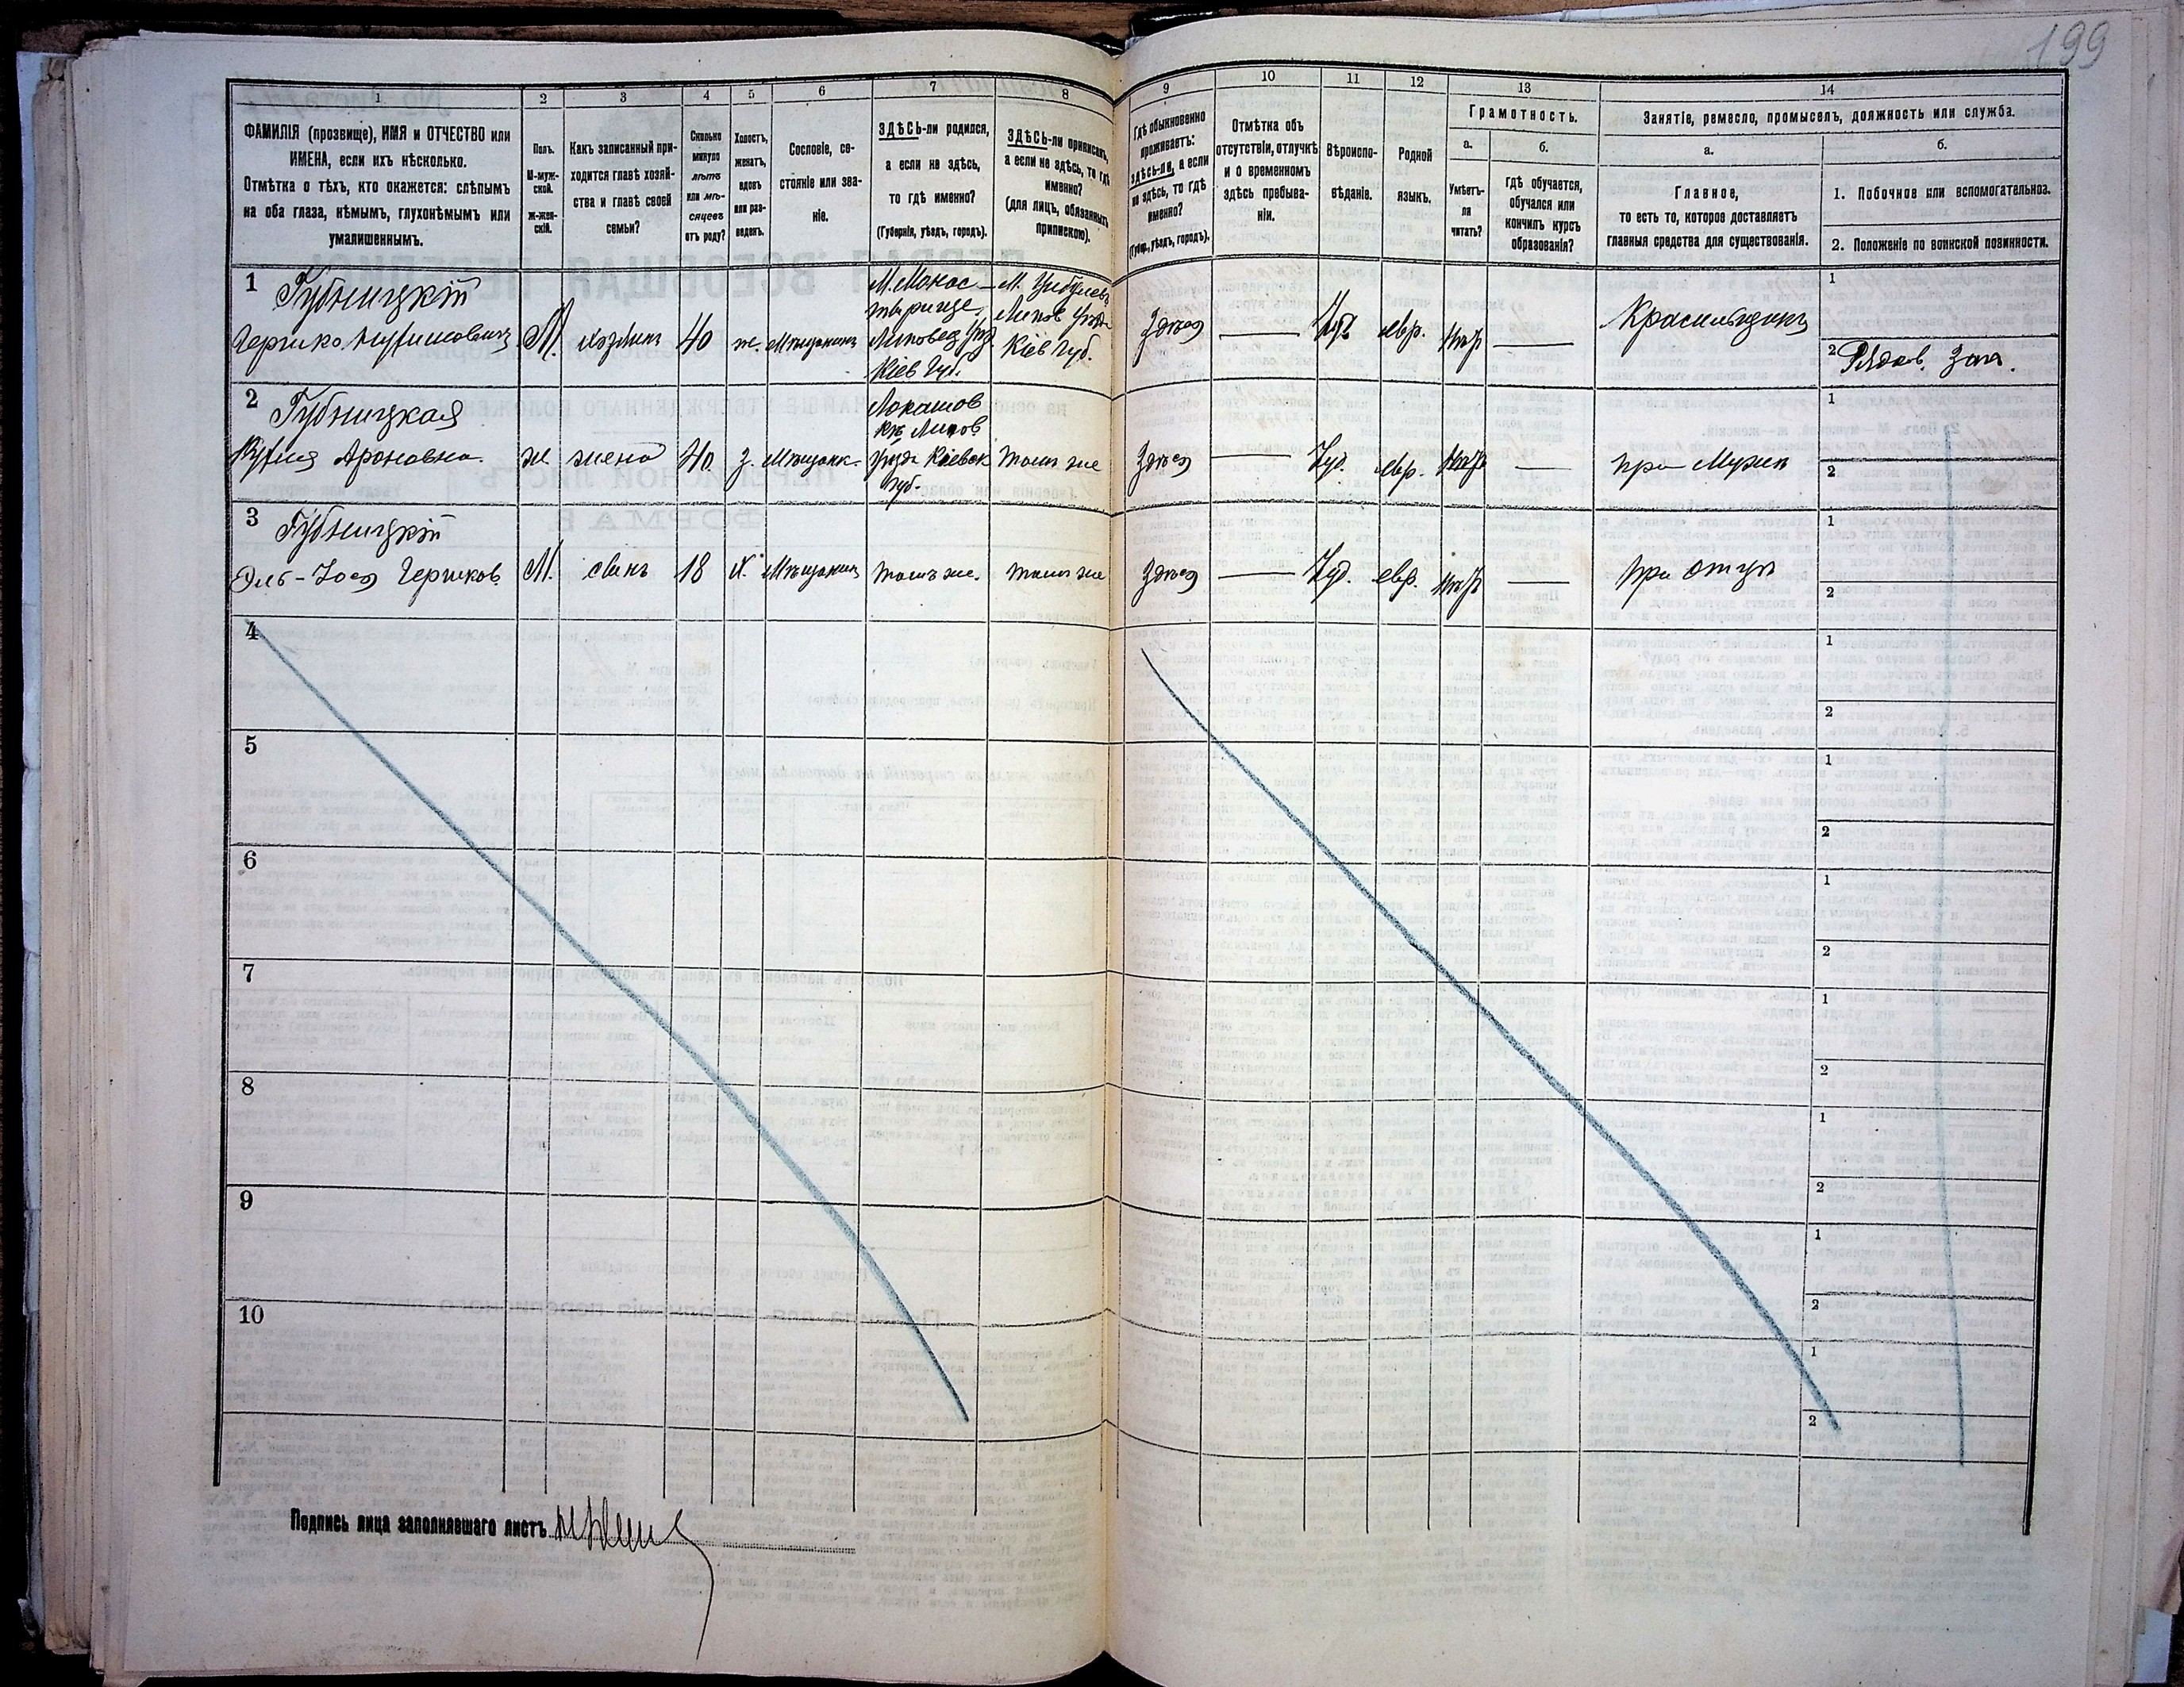 199
1
2
3
4
5
6
7
8
9
10
11
12
13
14
ФАМИЛІЯ (прозвище), ИМЯ и ОТЧЕСТВО или
ИМЕНА, если ихъ нѣсколько.
Отмѣтка о тѣхъ, кто окажется: слѣпымъ
на оба глаза, нѣмымъ, глухонѣмымъ или
умалишеннымъ.
Полъ.
М-муж-
ской.
Ж-жен-
скій.
Какъ записанный при-
ходится главѣ хозяй-
ства и главѣ своей
семьи?
Сколько
минуло
лѣтъ
или мѣ-
сяцевъ
отъ роду?
Холостъ,
женатъ,
вдовъ
или раз-
веденъ.
Сословіе, со-
стояніе или зва-
ніе.
ЗДѢСЬ-ли родился,
а если не здѣсь,
то гдѣ именно?
(Губернія, уѣздъ, городъ).
ЗДѢСЬ-ли приписанъ,
а если не здѣсь, то гдѣ
именно?
(для лицъ, обязанныхъ
припискою).
Гдѣ обыкновенно
проживаетъ:
здѣсь-ли, а если
не здѣсь, то гдѣ
именно?
(Губер., уѣздъ, городъ).
Отмѣтка объ
отсутствіи, отлучкѣ
и о временномъ
здѣсь пребыва-
ніи.
Вѣроиспо-
вѣданіе.
Родной
языкъ.
Грамотность.
а.
Умѣетъ-
ли
читать?
б.
гдѣ обучается,
обучался или
кончилъ курсъ
образованія?
Занятіе, ремесло, промыселъ, должность или служба.
а.
Главное,
то есть то, которое доставляетъ
главныя средства для существованія.
б.
1. Побочное или вспомогательное.
2. Положеніе по воинской повинности.
1 Губницкій
М. Монас-
тырище
Липовец. Уѣзд.
Кіев Губ.
Липов Уѣзд
Кіев Губ.
М. Хозяинъ 40 ж. Мѣщанинъ
Здѣсь — Іуд. евр. Нѣтъ — Красильщикъ
1
2 Рядов. Зап.
2 Губницкая
Ароновна ж. жена 40 з. Мѣщанк.
Уѣзд Кіевск
Губ.
Томъ же
Здѣсь — Іуд. евр. Нѣтъ — при Мужѣ
1
2
3 Губницкій
Гершков. М. сынъ 18 Х. Мѣщанинъ томъ же. томъ же
Здѣсь — Іуд. евр. Нѣтъ — при отцѣ
1
2
4
1
2
5
1
2
6
1
2
7
1
2
8
1
2
9
1
2
10
1
2
Подпись лица заполнявшаго листъ